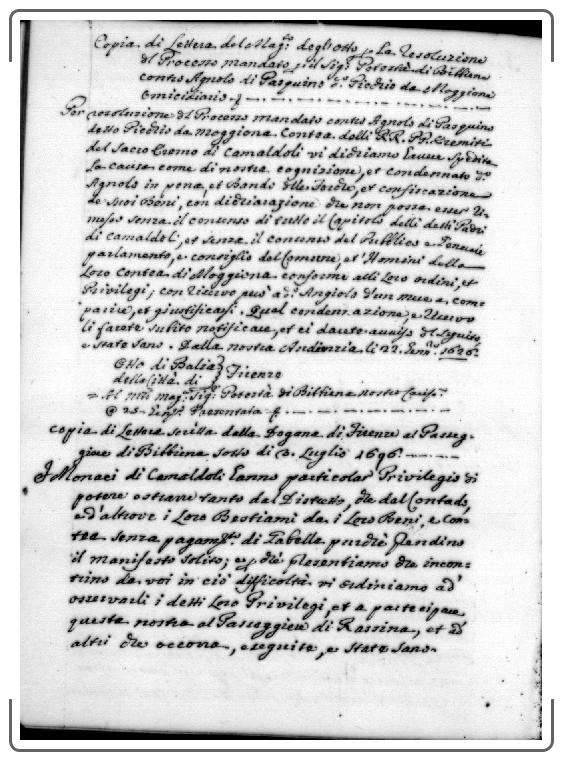 Copia di Lettera del Mag.to degl'Otto p. La Resoluzione
d'l Processo mandato p. il Sig.r Potestà di Bibbiena
contro Agnolo di Pasquino d.o Picchio da Moggiona
Omicidiario
Per resoluzione d'l Processo mandato contro Agnolo di Pasquino
detto Picchio da moggiona Contea delli R.R. PP. Eremiti
del Sacro Eremo di Camaldoli vi diciamo Essere spedita
La causa come di nostra cognizione, et condennato d.o
Agnolo in pena, et Bando delle Forche, et confiscazione
de suoi Beni, con dichiarazione che non possa esser Ri-
messo senza il consenso di tutto il Capitolo delli detti Padri
di camaldoli, et senza il consenso del Pubblico e Generale
parlamento, e consiglio del Comune, et Homini della
Loro Contea di Moggiona conforme alli Loro ordini, et
Privilegi, con riservo però a d.o Angiolo d'un mese a com-
parire, et giustificarsi. Qual condennazione, e Riservo
li farete subito notificare, et ci darete avviso d'l seguito,
e state sano. Dalla nostra Audienzia li 22. Genn.o 1626.
Otto di Balia
della Città di Firenze
= Al m.to mag.co Sig.r Potestà di Bibbiena nostro Cariss.o
@ 25. Genn.o Presentata
Copia di Lettera scritta dalla Dogana di Firenze al Passeg-
giere di Bibbiena sotto di 3. Luglio 1696.
I Monaci di Camaldoli Eanno particolar Privilegio di
potere estrarre tanto dal Distretto, che dal Contado,
ed'altrove i Loro Bestiami da i Loro Beni, e Con-
tea senza pagam.to di Tabella purchè prendino
il manifesto solito; e perchè presentiamo che incon-
trino da voi in ciò difficoltà vi ordiniamo ad'
osservarli i detti Loro Privilegi, et a partecipare
questa nostra al Passeggiere di Rassina, et ad'
altri che occorra, eseguite, e state sano.